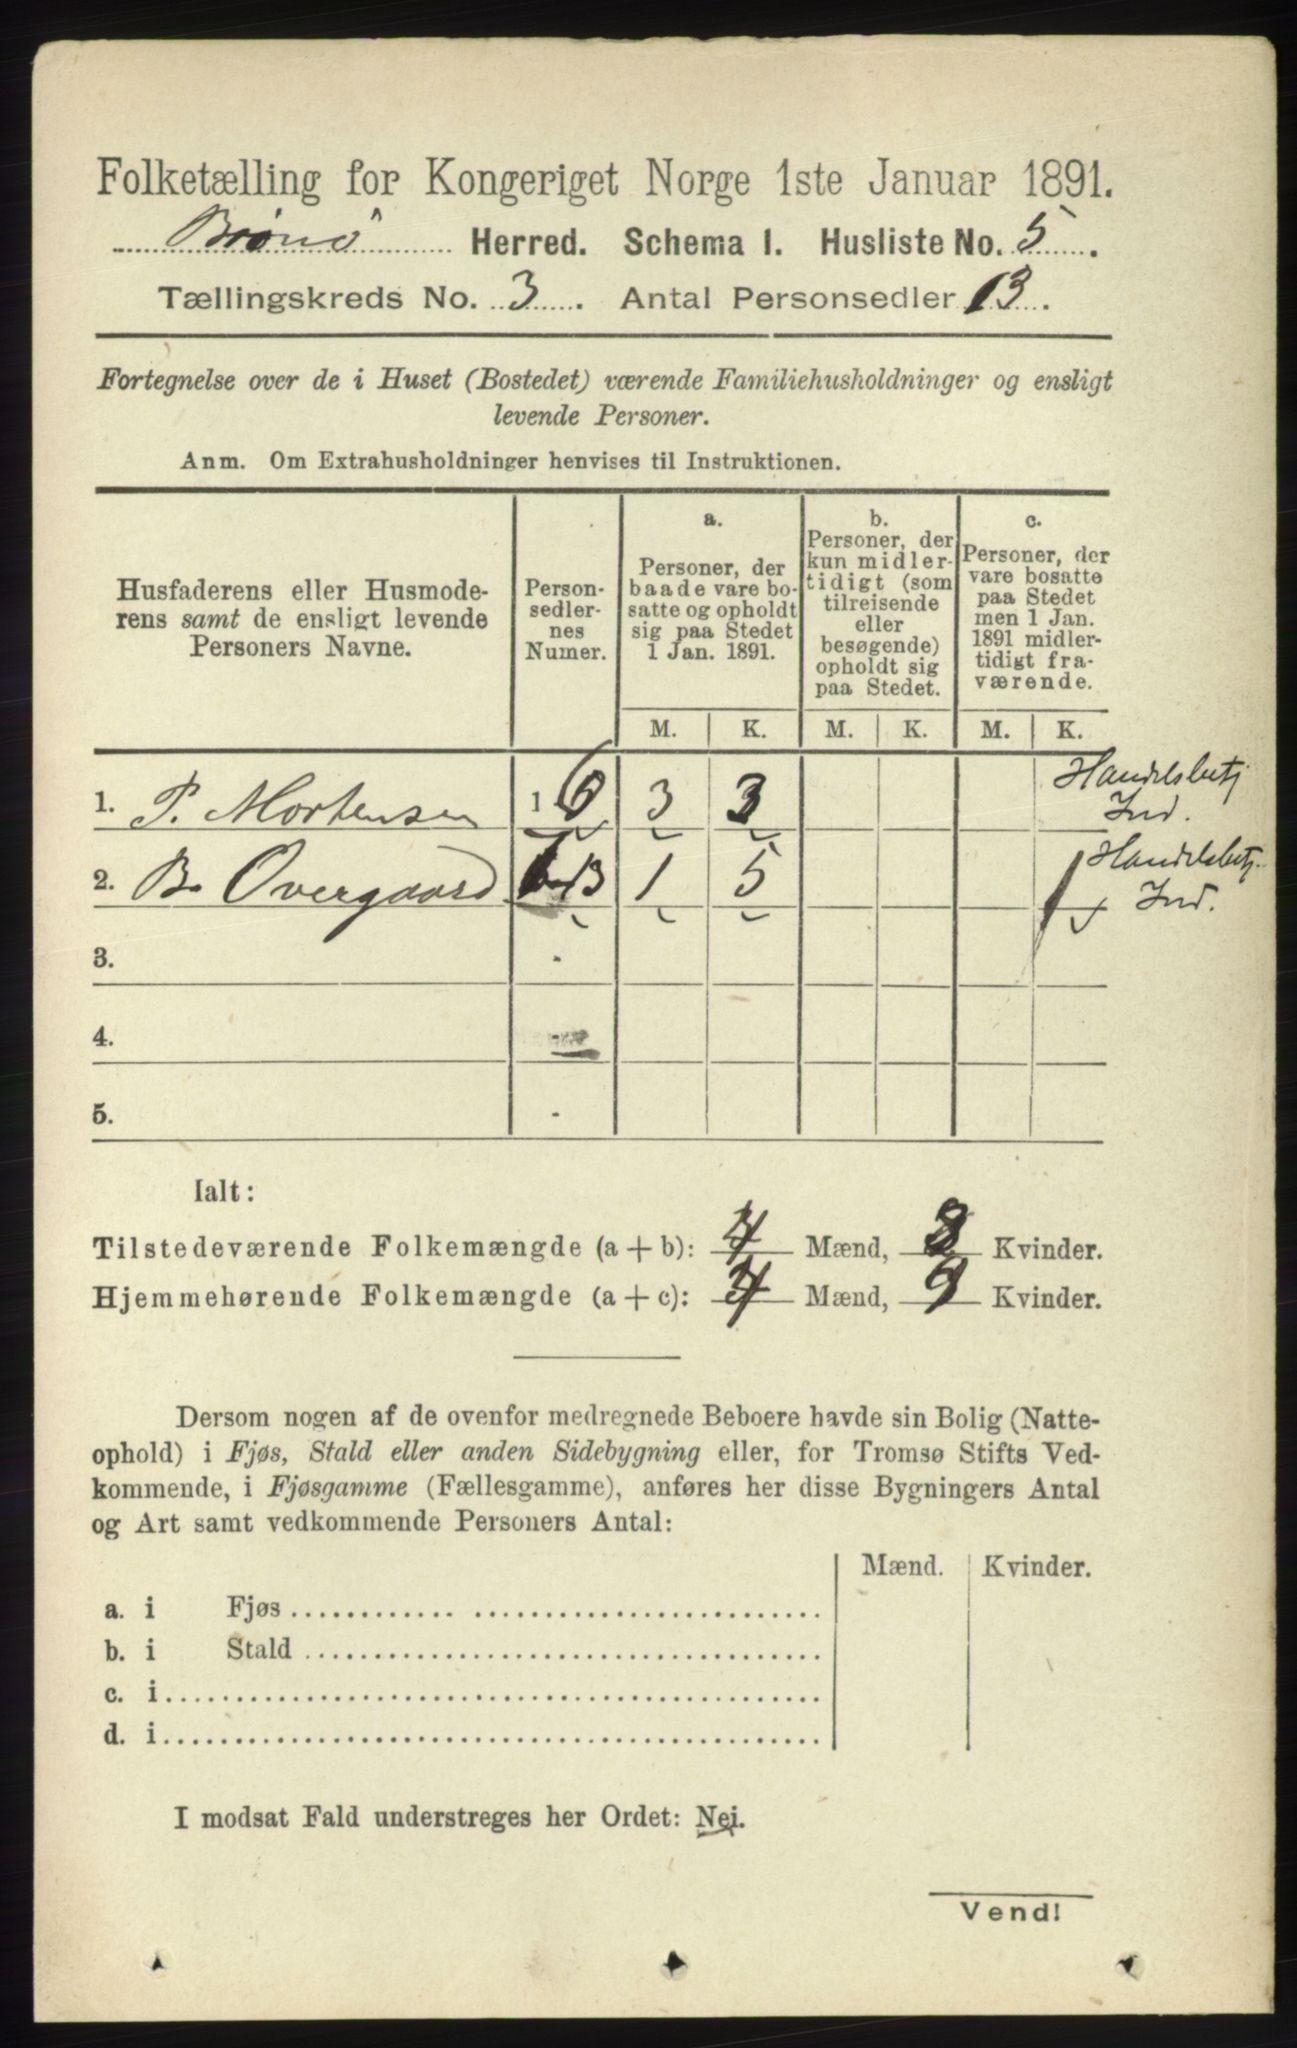 Folketælling for Kongeriget Norge 1ste Januar 1891.
Brønö Herred. Schema 1. Husliste No. 5.
Tællingskreds No. 3. Antal Personsedler 13.
Fortegnelse over de i Huset (Bostedet) værende Familiehusholdninger og ensligt
levende Personer.
Anm. Om Extrahusholdninger henvises til Instruktionen.
Husfaderens eller Husmode-
rens samt de ensligt levende
Personers Navne.
Person-
sedler-
nes
Numer.
a.
Personer, der
baade vare bo-
satte og opholdt
sig paa Stedet
1 Jan. 1891.
b.
Personer, der
kun midler-
tidigt (som
tilreisende
eller
besøgende)
opholdt sig
paa Stedet.
c.
Personer, der
vare bosatte
paa Stedet
men 1 Jan.
1891 midler-
tidigt fra-
værende.
M. K. M. K. M. K.
1. P. Mortensen 1-6 3 3 Handelsbetj
Ind.
2. B. Overgaard 7-13 1 5 1 Handelsbetj.
Ind.
3. -
4. -
5. -
Ialt:
Tilstedeværende Folkemængde (a + b): 4 Mænd, 8 Kvinder.
Hjemmehørende Folkemængde (a + c): 4 Mænd, 9 Kvinder.
Dersom nogen af de ovenfor medregnede Beboere havde sin Bolig (Natte-
ophold) i Fjøs, Stald eller anden Sidebygning eller, for Tromsø Stifts Ved-
kommende, i Fjøsgamme (Fællesgamme), anføres her disse Bygningers Antal
og Art samt vedkommende Personers Antal:
Mænd. Kvinder.
a. i Fjøs
b. i Stald
c. i
d. i
I modsat Fald understreges her Ordet: Nei.
Vend!